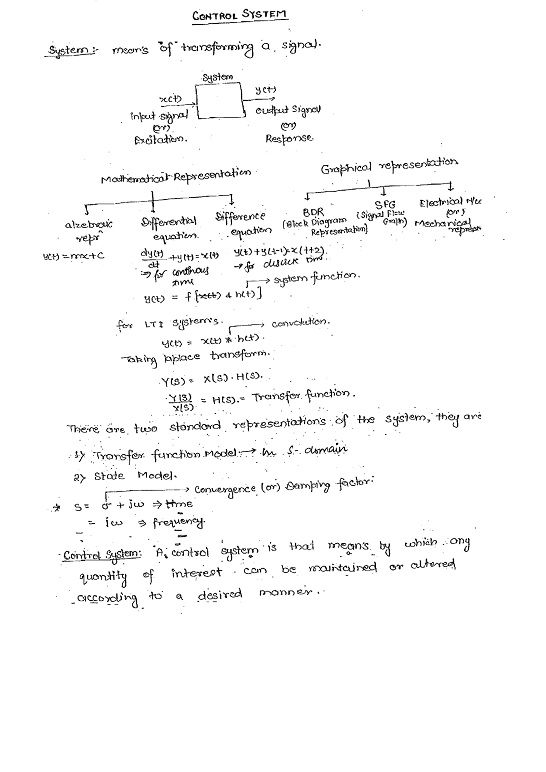 CONTROL SYSTEM
System:- means of transforming a signal.
System
x(t)
y(t)
Input signal
(or)
Excitation.
Output Signal
(or)
Response
Mathematical Representation
Graphical representation
alzebraic
repr^n
y(t) = mx+C
Differential
equation.
dy(t)/dt + y(t) = x(t)
→ for continous
time
Difference
equation
y(t)+y(t-1)=x(t+2).
→ for discrete time.
BDR
(Block Diagram
Representation)
SFG
(Signal flow
Graph)
Electrical
(or)
Mechanical
y(t) = f [x(t) & h(t)]
→ system function.
for LTI systems.
→ convolution.
y(t) = x(t) * h(t).
Taking laplace transform.
Y(S) = X(S) . H(S).
Y(S)/X(S) = H(S). = Transfer function.
There are two standard representations of the system, they are
1) Transfer function Model → In S-domain
2) State Model.
→ convergence (or) Damping factor.
* S = σ + jω ⇒ time
= jω ⇒ frequency.
Control System: A control system is that means by which any
quantity of interest can be maintained or altered
according to a desired manner.